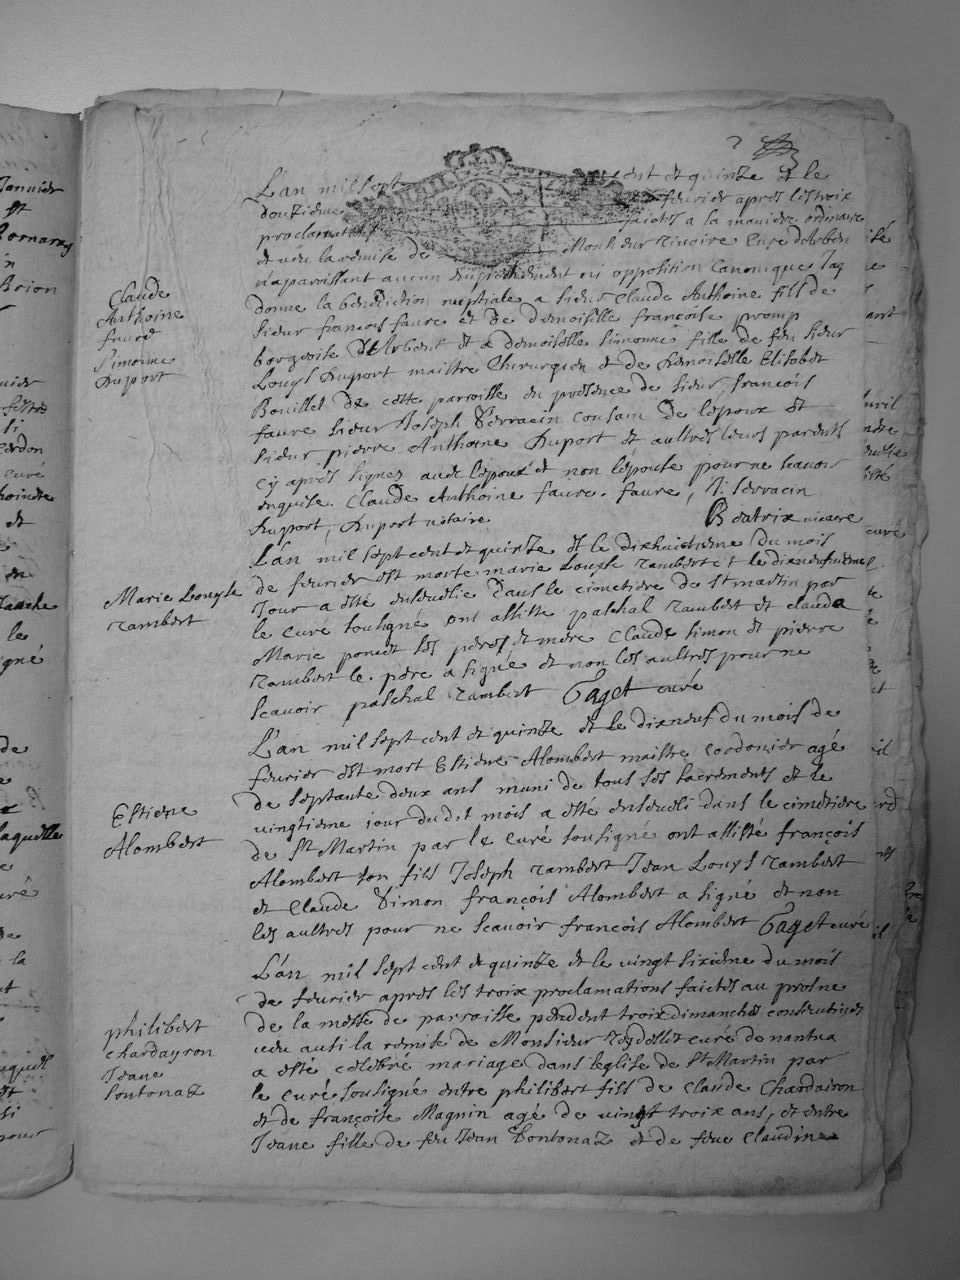 L'an mil sept cent et quinze et le
douzieme feurier apres les troix
proclamations faictes a la maniere ordinaire
et ueu la remise de Monsieur uicaire Curé d'Arben
n'aparoissant aucun enpeschement ni opposition Canonique J'ay
donne la benediction nuptiale a sieur Claude Anthoine fils de
sieur francois faure et de demoiselle françoise promp
borgeoise d'Arbent et a demoiselle Simonne fille de feu sieur
Louys Duport maistre Chirurgien et de Demoiselle Elisabet
Bouillet de cette parroisse en presence de sieur françois
faure sieur Joseph Serracin cousain de l'epoux et
sieur pierre Anthoine Duport et aultres leurs parents
cy apres signez auec l'epoux et non l'epouse pour ne scauoir
enquise. Claude Anthoine faure. faure, J. Serracin
Duport, Duport notaire. Beatrix uicaire
Claude
Anthoine
faure
Simonne
Duport
L'an mil sept cent et quinze et le dixhuictieme du mois
de feurier est morte marie Louyse rambert et le dixneufuieme
Jour a esté enseuelie dans le cimetiere de St martin par
le curé sousigné ont assisté paschal rambert et clauda
Marie poncet ses peres et mere Claude simon et pierre
rambert le pere a signé et non les aultres pour ne
scauoir paschal rambert Gaget curé
Marie Louyse
rambert
L'an mil sept cent et quinze et le dixneuf du mois de
feurier est mort Estiene Alombert maistre cordonier agé
de septante deux ans muni de tous ses sacrements et le
vingtieme jour dudit mois a esté enseueli dans le cimetiere
de St Martin par le curé sousigné ont assisté françois
Alombert son fils Joseph rambert Jean Louys rambert
et Claude Simon françois Alombert a signé et non
les aultres pour ne scauoir francois Alombert Gaget curé
Estiene
Alombert
L'an mil sept cent et quinze et le vingt sixieme du mois
de feurier apres les troix proclamations faictes au prosne
de la messe de parroisse pendent troix dimanches consecutiues
ueu aussi la remise de Monsieur curé de nantua
a esté celebré mariage dans l'eglise de St Martin par
le curé sousigné entre philibert fils de Claude Chardairon
et de françoise Magnin agé de vingt troix ans, et entre
Jeane fille de feu Jean Sontonaz et de feue Claudine
philibert
chardayron
Jeane
Sontonaz